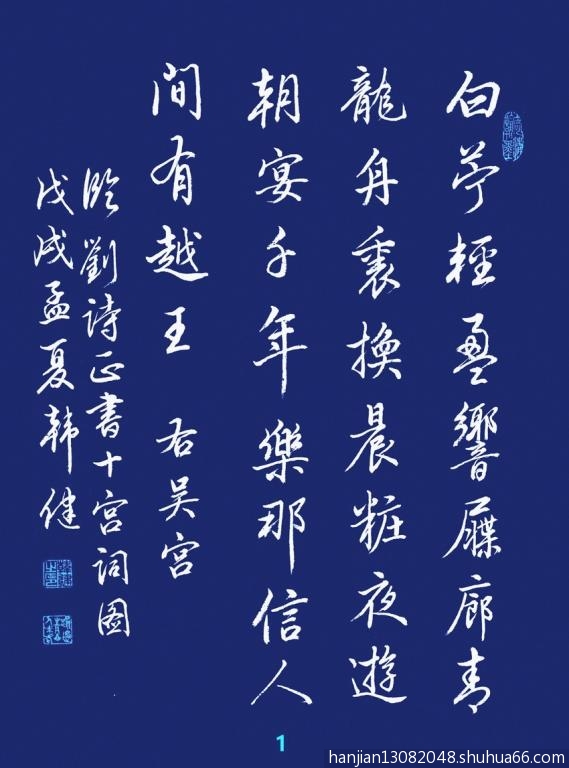 白苧輕盈響屧廊青
龍舟裏換晨粧夜遊
朝宴千年樂那信人
間有越王 右吴宫
臨劉诗正書十宫词图
戊戌孟夏韩健
1
hanjian13082048.shuhua66.com